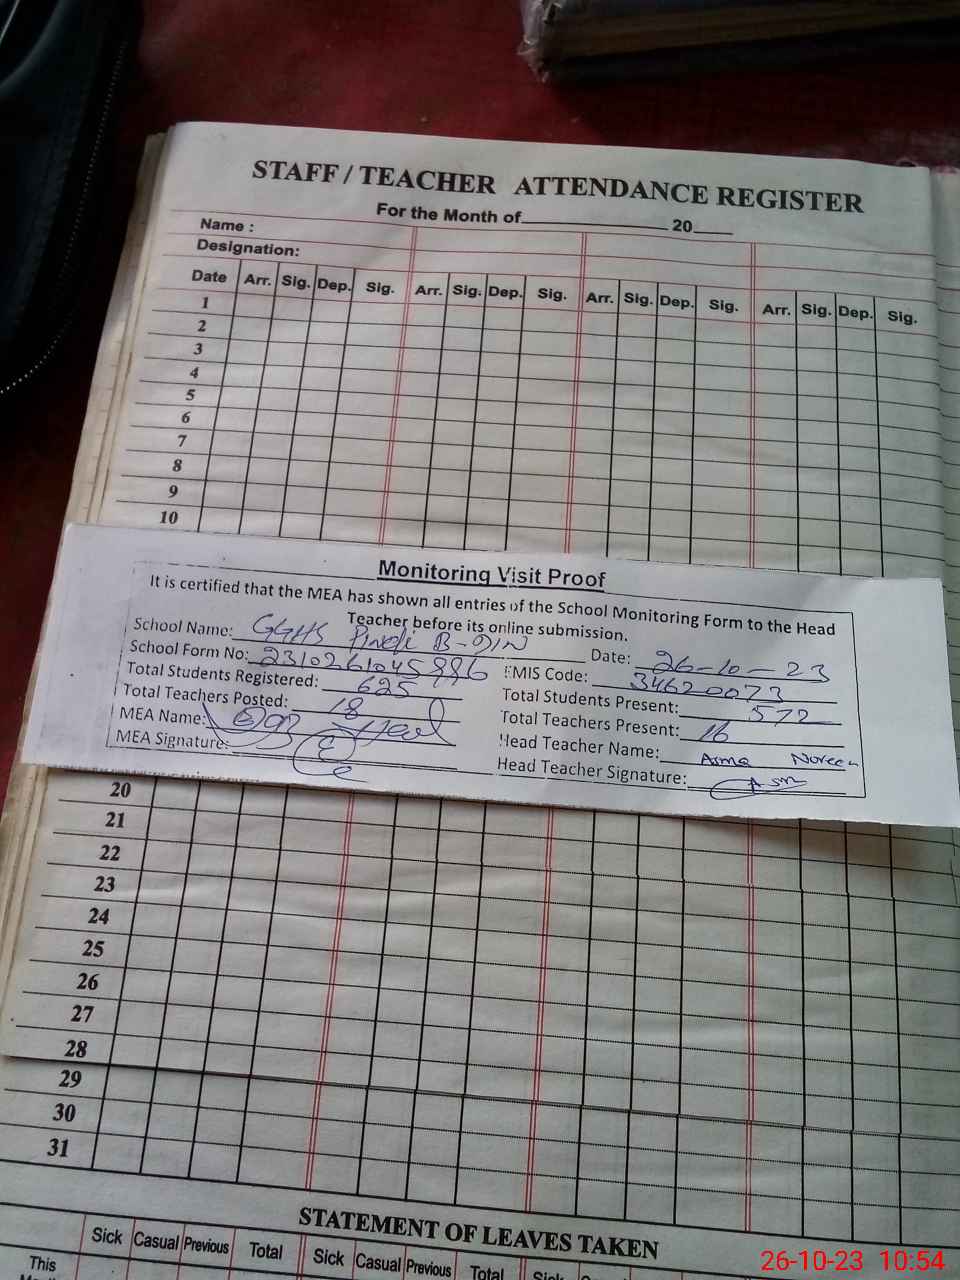 STAFF / TEACHER ATTENDANCE REGISTER
For the Month of 20
Name :
Designation:
Date Arr. Sig. Dep. Sig. Arr. Sig. Dep. Sig. Arr. Sig. Dep. Sig. Arr. Sig. Dep. Sig.
1
2
3
4
5
6
7
8
9
10
Monitoring Visit Proof
It is certified that the MEA has shown all entries of the School Monitoring Form to the Head
Teacher before its online submission.
School Name: GGHS Pindi B-DIN Date: 26-10-23
School Form No: EMIS Code: 34620073
Total Students Registered: 625 Total Students Present: 572
Total Teachers Posted: 18 Total Teachers Present: 16
MEA Name: Head Teacher Name: Asma Noreen
MEA Signature: Head Teacher Signature: Asm
20
21
22
23
24
25
26
27
28
29
30
31
STATEMENT OF LEAVES TAKEN
Sick Casual Previous Total Sick Casual Previous Total Sick
This
26-10-23 10:54